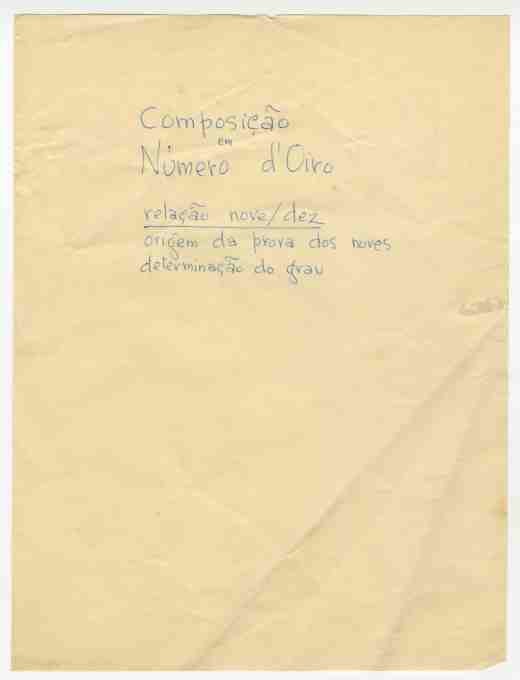 Composição
em
Número d'Oiro
relação nove/dez
origem da prova dos noves
determinação do grau